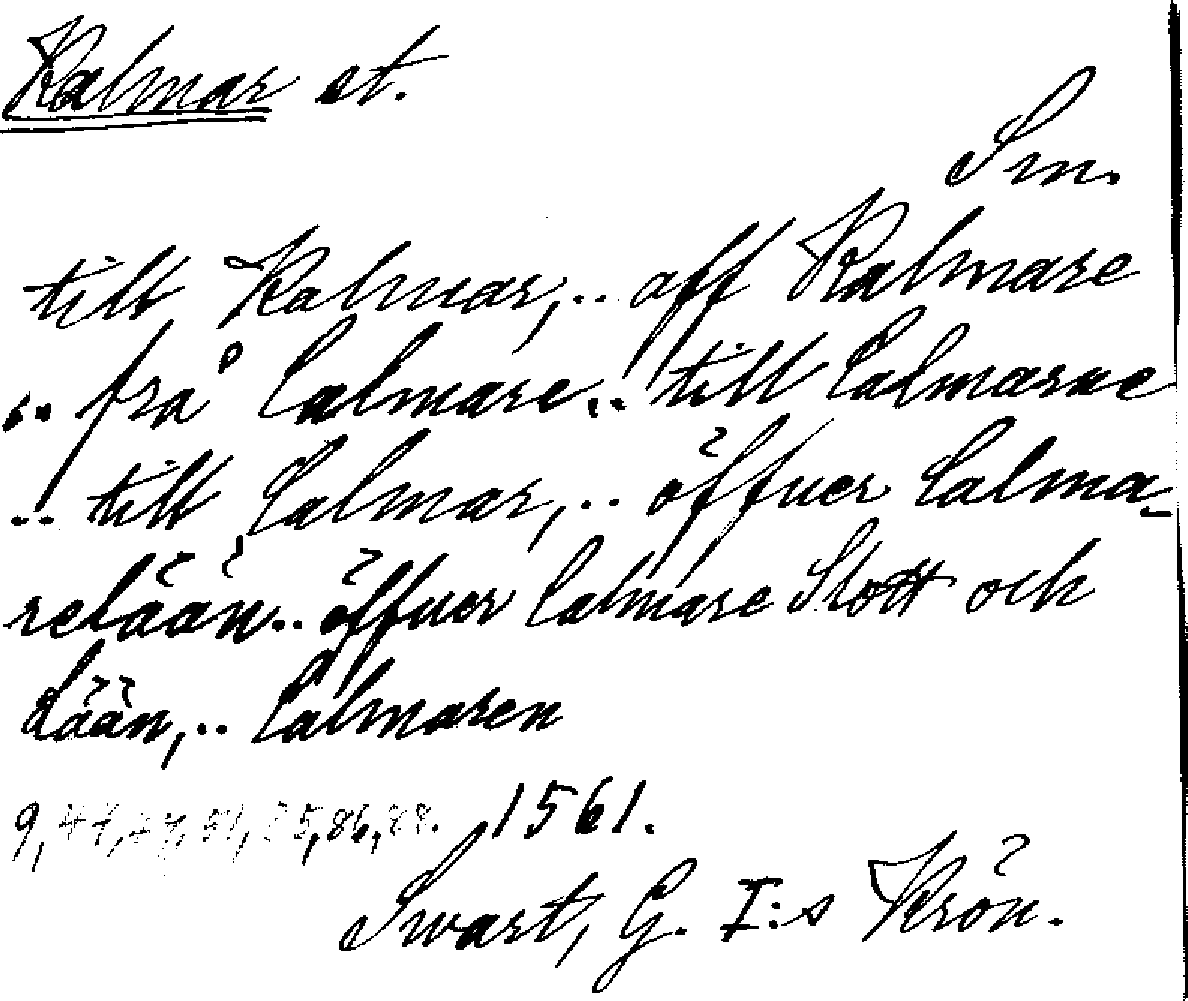 Kalmar st.
Sm.
till Kalmar,.. aff Kalmare
.. frå Calmare.. till Calmarne
.. till Calmar,.. öffuer Calma-
relään.. öffuer Calmare Slott och
Lään,.. Calmaren
9, 51, 86, 1561.
Swart, G. I:s Krön.